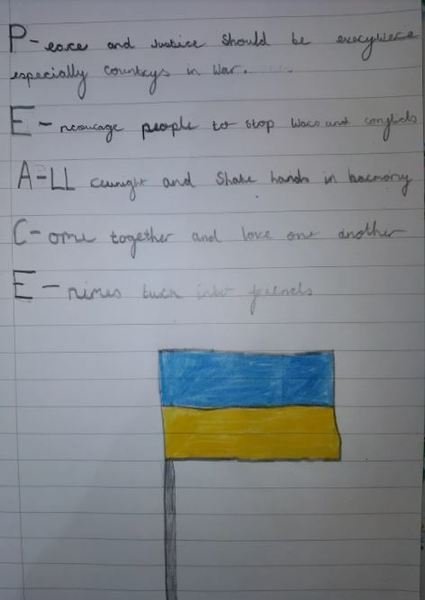 P-eace and Justice should be everywhere
especially countrys in war.
E-ncourage people to stop wars and conflicts
A-LL and Shake hands in harmony
C-ome together and love one another
E-nimes turn into friends